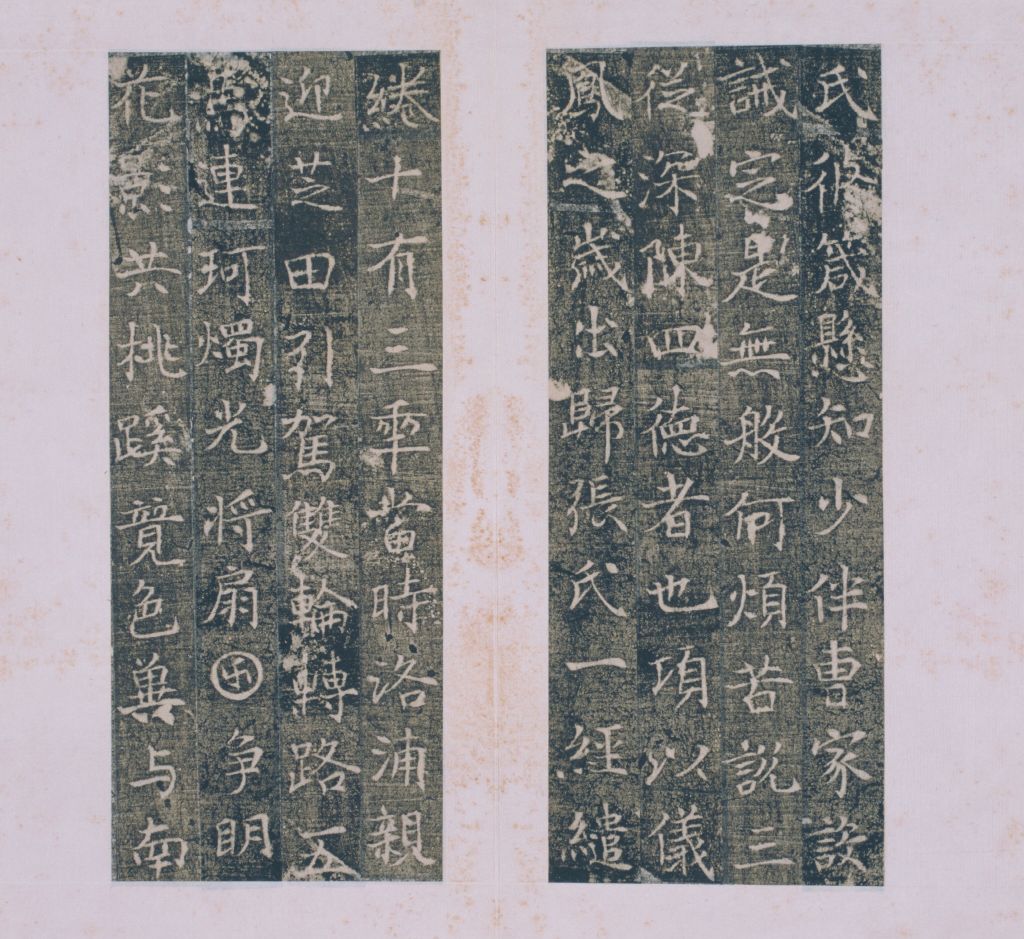 氏彼箴懸知少伴曹家設
誡定是無般何煩若說三
從深陳四德者也頊以儀
鳳之歲出歸張氏一經繾
綣十有三年當時洛浦親
迎芝田引駕雙輪轉路五
馬連珂燭光將扇卍爭眀
花影共桃蹊竟色冀与南